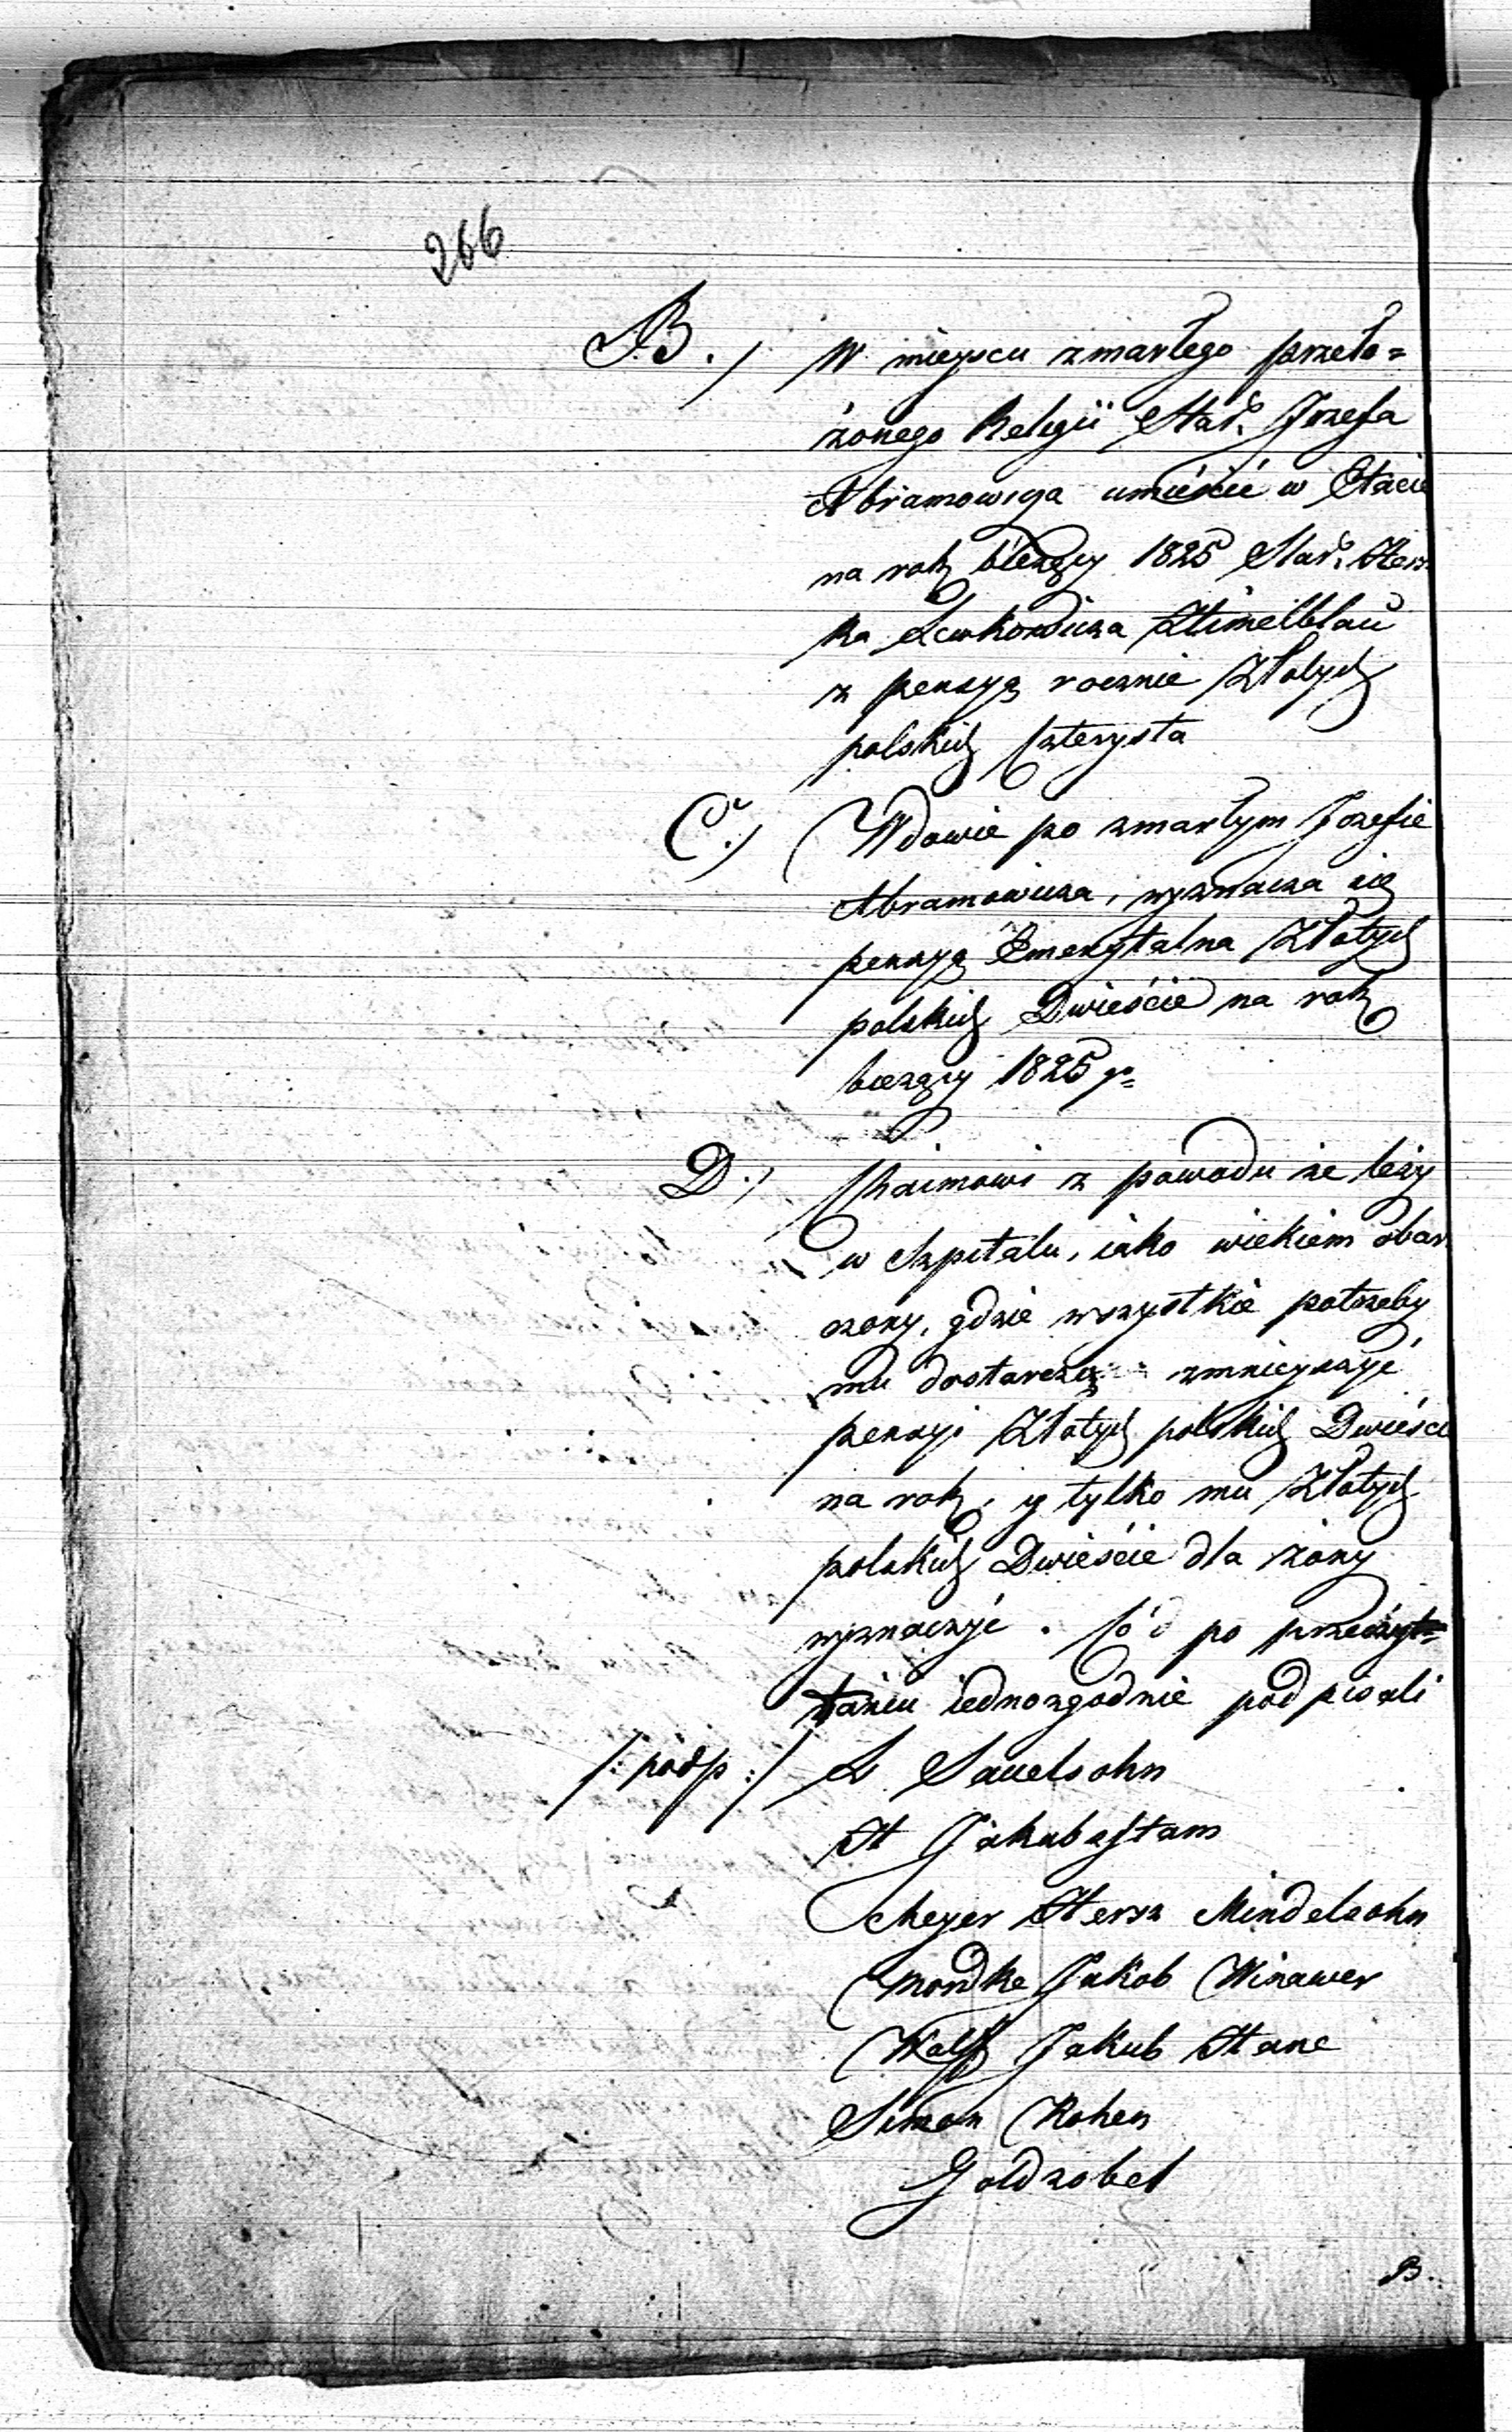 266
B./ W mieyscu zmarłego przeło=
żonego Religii Star. Jozefa
Abramowicza umieścić w Etacie
na rok bieżący 1825 Star. Hersz
ka Lewkowicza Himelblau
z pensyą rocznie Złotych
polskich Czterysta
C./ Wdowie po zmarłym Jozefie
Abramowicza, wyznacza się
pensyą Emerytalna Złotych
polskich Dwieście na rok
bieżący 1825 go=
D./ Chaimowi z powodu że leży
w Szpitalu, iako wiekiem obar
czony, gdzie wszystkie potrzeby
mu dostarczą zmnieyszyć
pensyi Złotych polskich Dwieście
na rok, y tylko mu Złotych
polskich Dwieście dla żony
wyznaczyć. Co po przeczyt=
taniu iednozgodnie podpisali
/: podp :/ L Sauelsohn
H Jakubastam
Meyer Hersz Mindelsohn
Mordke Jakob Winawer
Wolff Jakub Hane
Simon Kohen
Goldzobel
B.